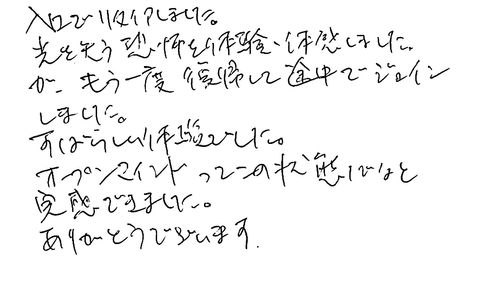 入口でリタイアしました。
光を失う恐怖を体験・体感しました。
が、もう一度復帰して途中でジョイン
しました。
すばらしい体験でした。
オープンマインドってこの状態だなと
実感できました。
ありがとうございます.